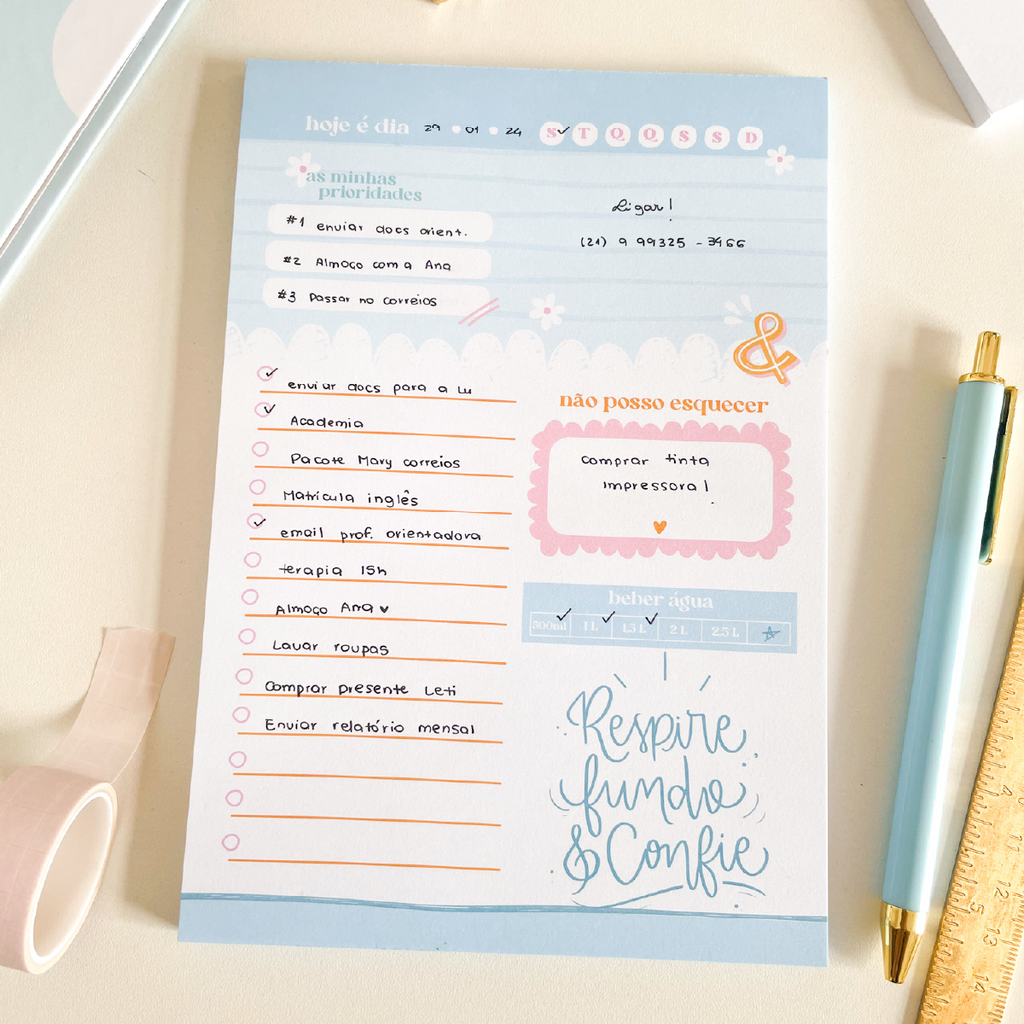 hoje é dia 29 01 24 S T Q Q S S D
as minhas
prioridades
#1 enviar docs orient.
#2 Almoço com a Ana
#3 Passar no correios
Ligar!
(21) 9 99325-3966
&
enviar docs para a Lu
Academia
Pacote Mary correios
Matrícula inglês
email prof. orientadora
terapia 15h
Almoço Ana ♥
Lavar roupas
Comprar presente Leti
Enviar relatório mensal
não posso esquecer
comprar tinta
impressora!
beber água
500ml 1L 1,5L 2L 2,5L
Respire
fundo
& Confie
4
11
12
5
13
14